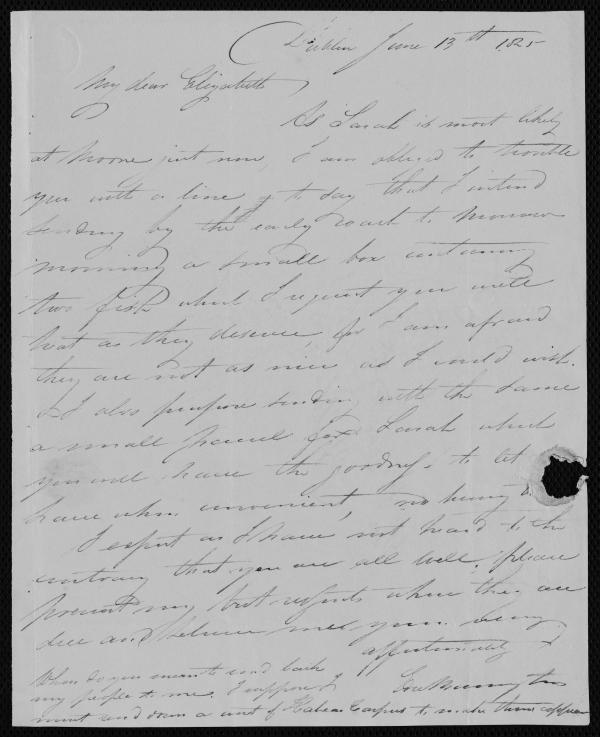 Dublin June 13th 1825
My dear Elizabeth
As Sarah is most likely
at Moone just now, I am obliged to trouble
you with a line to say that I intend
sending by the early coach to Morrow
morning a small box containing
two fish which I request you will
treat as they deserve for I am afraid
they are not as nice as I could wish.
I also propose sending with the same
a small parcel for Sarah which
you will have the goodness to let
have when convenient, no hurry
I expect as I have not heard to the
contrary that you are all well, please
present my best regards where they are
due and believe me yours very
affectionately
When do you mean to send back
my people to me, I suppose I
must send down a writ of Habeas Corpus to make them appear